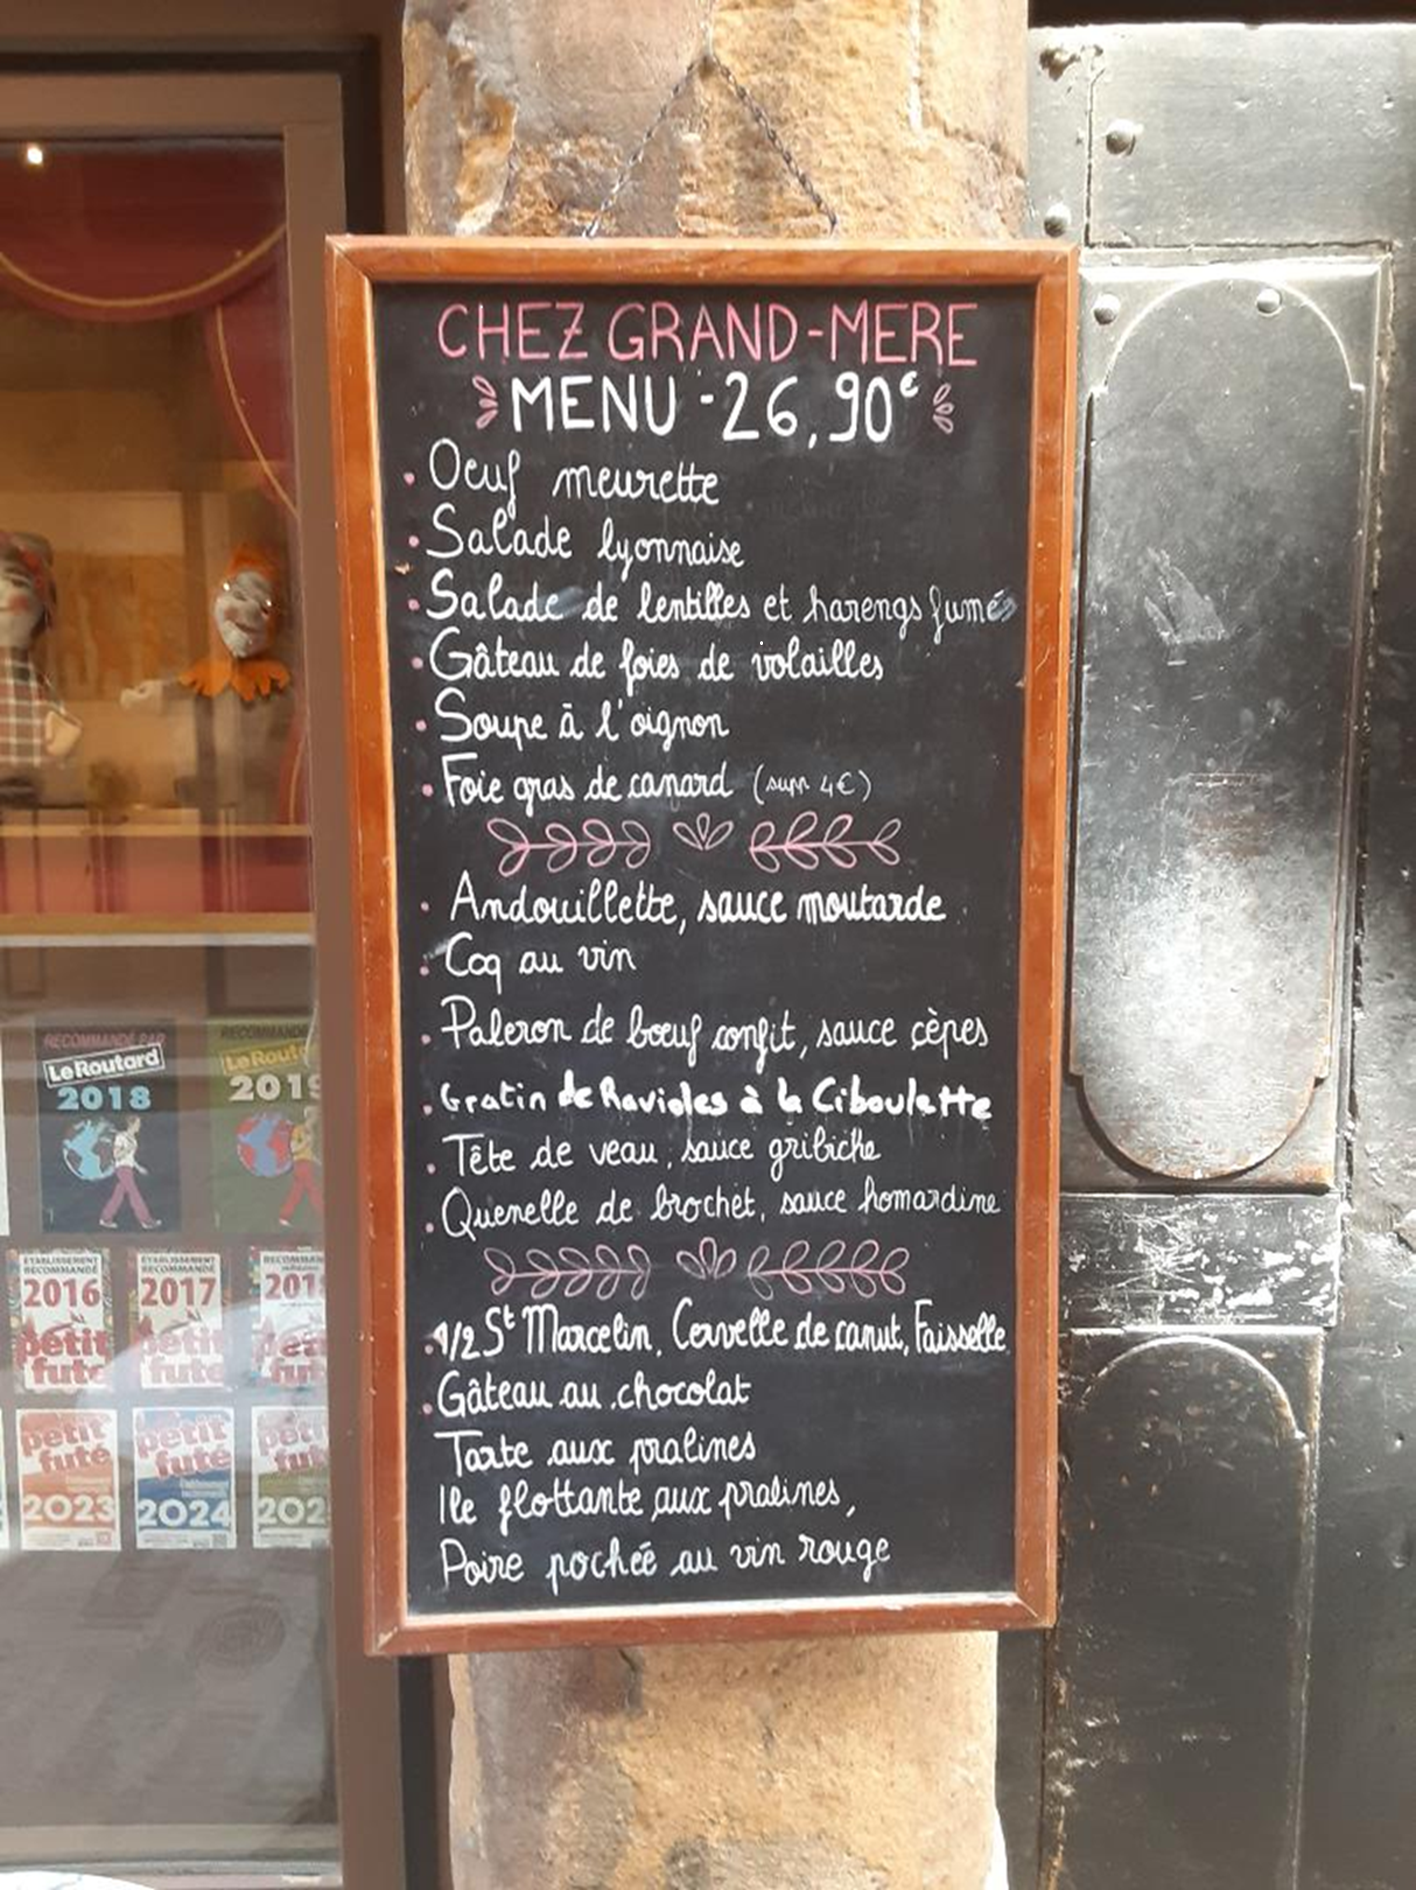 CHEZ GRAND-MERE
MENU - 26,90€
. Oeuf meurette
. Salade lyonnaise
. Salade de lentilles et harengs fumés
. Gâteau de foies de volailles
. Soupe à l'oignon
. Foie gras de canard (supp 4€)
. Andouillette, sauce moutarde
. Coq au vin
. Paleron de bœuf confit, sauce cèpes
. Gratin de Ravioles à la Ciboulette
. Tête de veau, sauce gribiche
. Quenelle de brochet, sauce homardine
. 1/2 St Marcelin, Cervelle de canut, Faisselle
. Gâteau au chocolat
Tarte aux pralines
Ile flottante aux pralines,
Poire pochée au vin rouge
RECOMMANDÉ PAR
Le Routard
2018
RECOMMANDÉ
Le Routard
2019
ÉTABLISSEMENT
RECOMMANDÉ
2016
petit
futé
ÉTABLISSEMENT
RECOMMANDÉ
2017
petit
futé
petit
futé
2023
petit
futé
2024